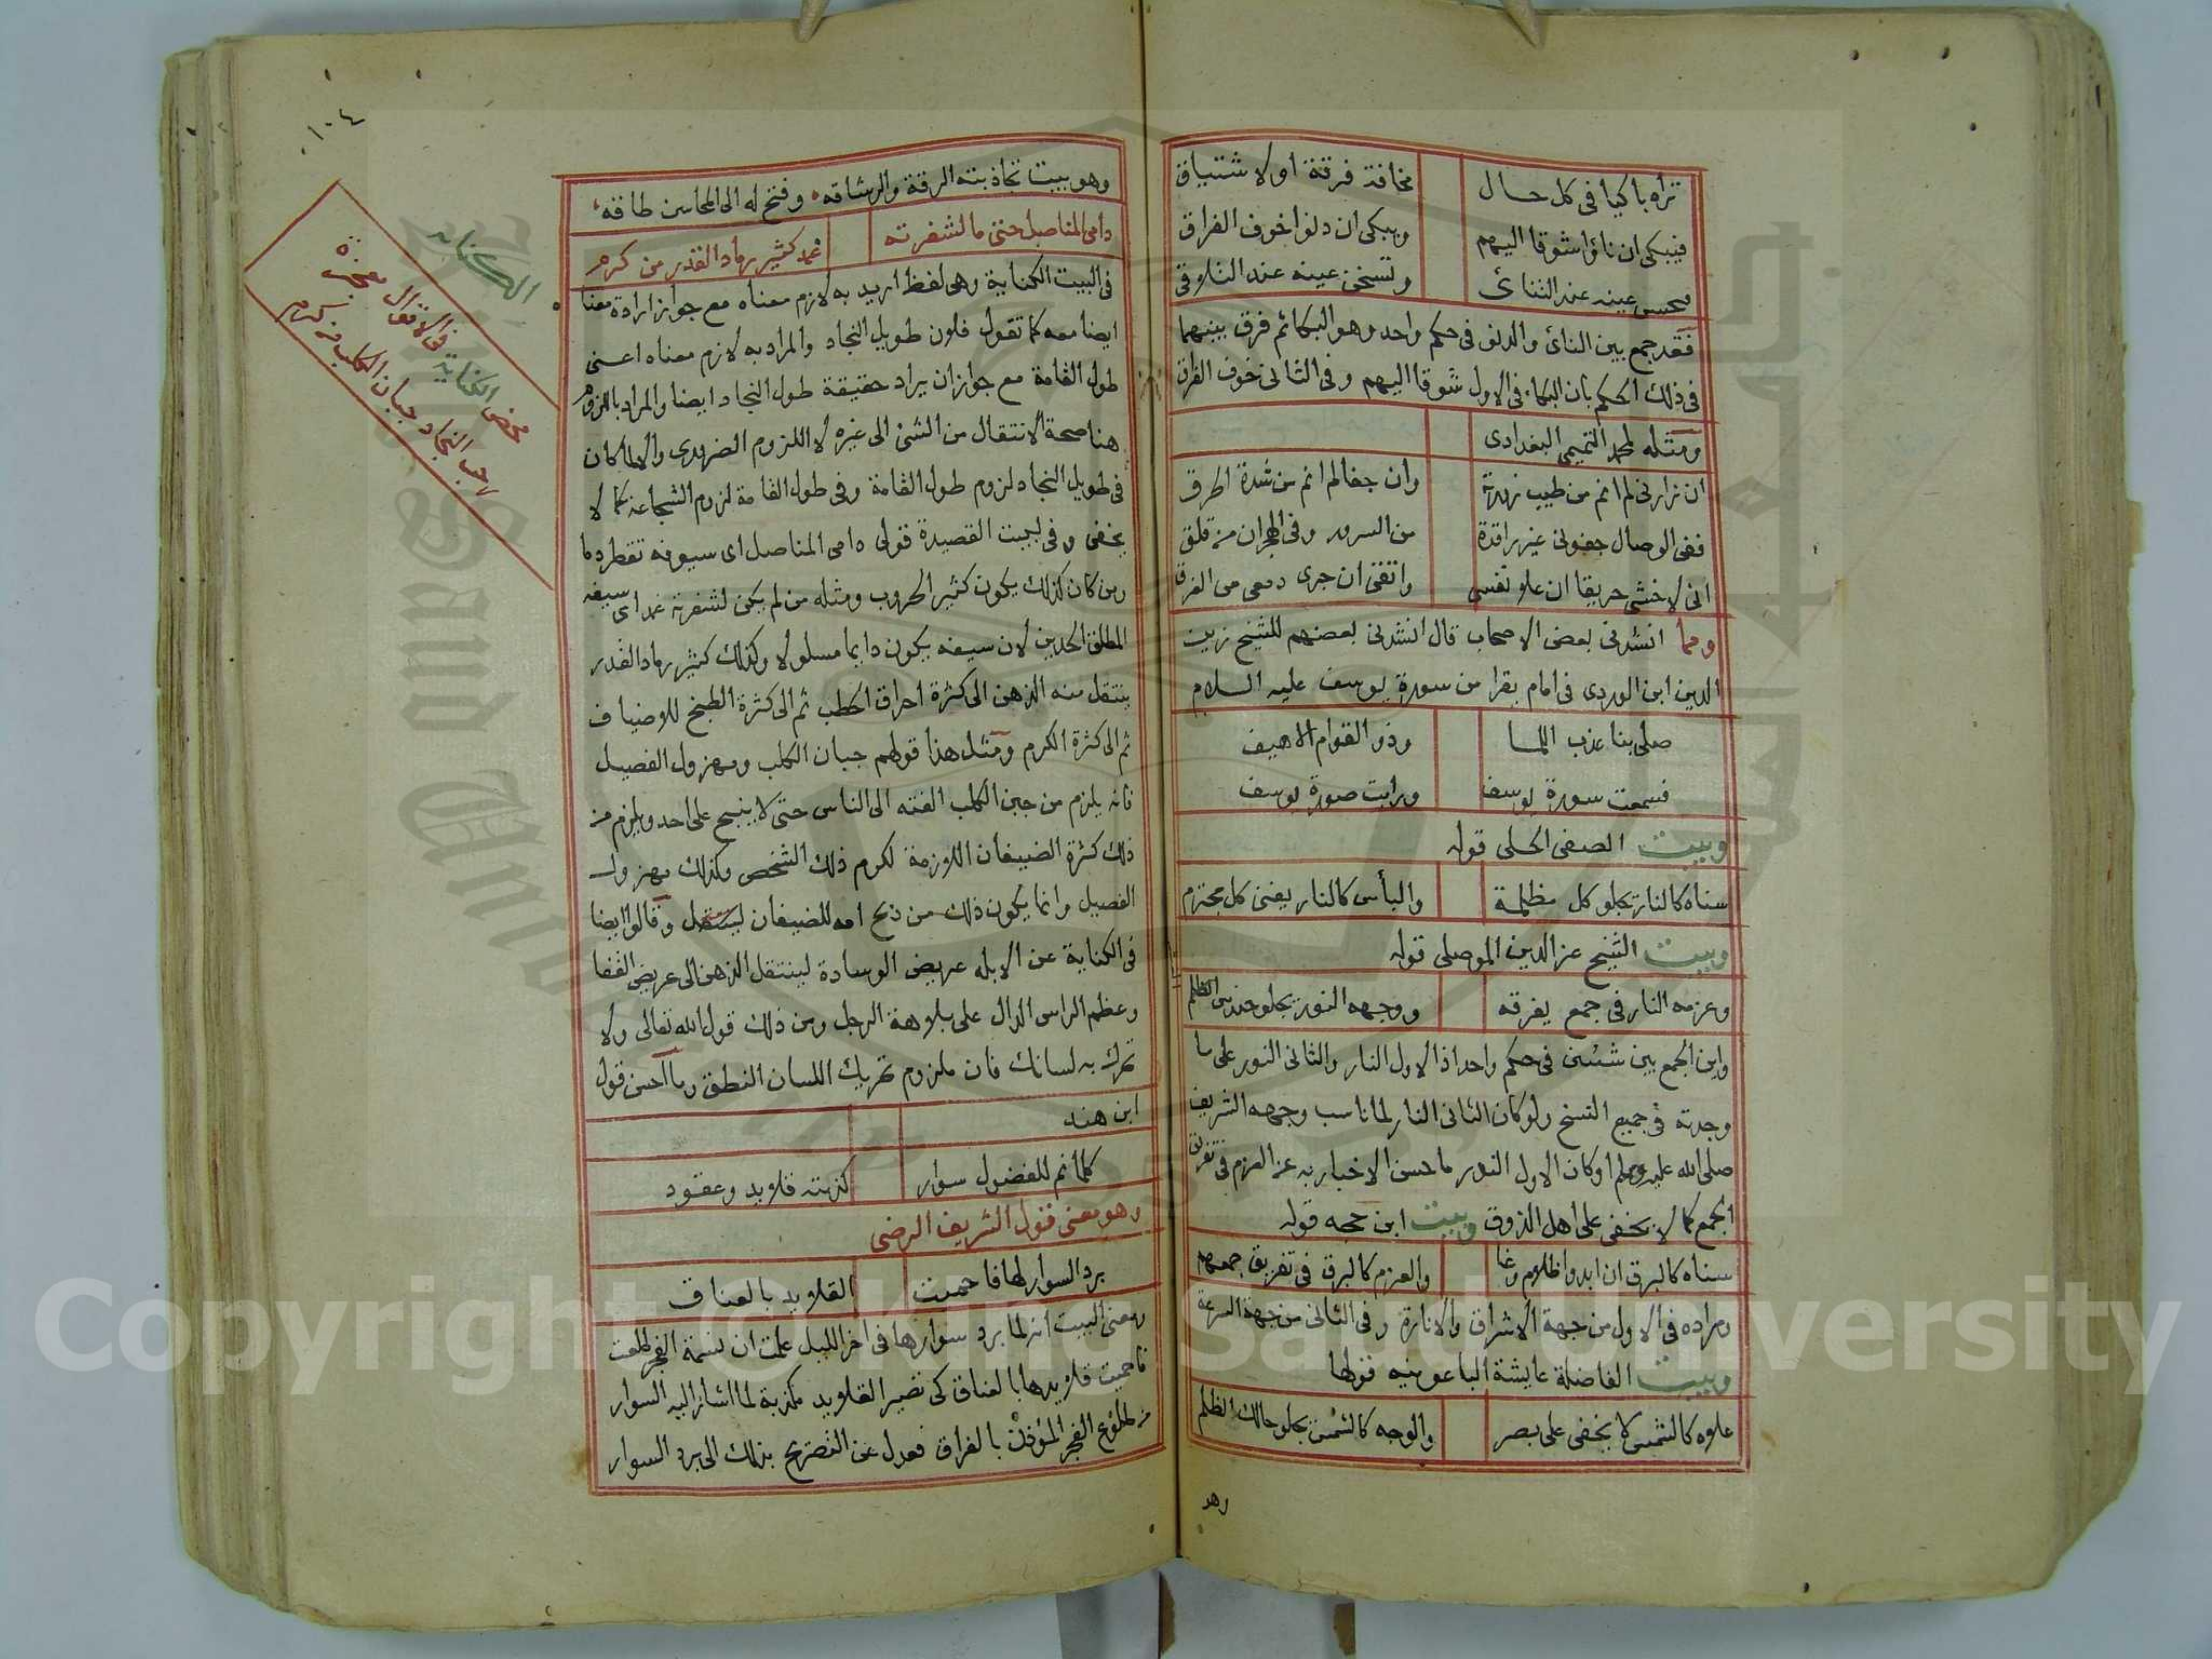 تراه باكيا في كل حال مخافة فرقة او لاشتياق
فيبكي ان نأوا شوقا اليهم ويبكي ان دنوا خوف الفراق
عينه عند التنائي وتسخن عينه عند التلاقي
فقد جمع بين النائ والدنو في حكم واحد وهو البكا ثم فرق بينهما
في ذلك الحكم بان البكاء في الاول شوقا اليهم وفي الثاني خوف الفراق
ومثله لمحمد التميمي البغدادي
ان زارني لم انم من طيب زورته وان جفا لم انم من شدة الحرق
ففي الوصال جفوني غير راقدة من السرور وفي الهجران من قلق
اني لاخشى حريقا ان علا نفسي واتقي ان جرى دمعي من الغرق
ومما انشدني بعض الاصحاب قال انشدني بعضهم للشيخ زين
الدين ابن الوردي في امام يقرا من سورة يوسف عليه السلام
صلى بنا عذب اللما وذو القوام الاهيف
فسمعت سورة يوسف ورايت صورة يوسف
وبيت الصفي الحلي قوله
سناه كالنار تجلو كل مظلمة والبأس كالنار يفني كل مجترم
وبيت الشيخ عز الدين الموصلي قوله
وعزمه النار في جمع يفرقه ووجهه النور يجلو حندس الظلم
واين الجمع بين شيئين في حكم واحد اذ الاول النار والثاني النور على ما
وجدته في جميع النسخ ولو كان الثاني النار لما ناسب وجهه الشريف
صلى الله عليه وسلم او كان الاول النور ما حسن الاخبار به عن العزم في تفريق
الجمع كما لا يخفى على اهل الذوق وبيت ابن حجه قوله
سناه كالبرق ان ابدوا ظلام وغا والعزم كالبرق في تفريق جمعهم
ومراده في الاول من جهة الاشراق والانارة وفي الثاني من جهة السرعة
وبيت الفاضلة عايشة الباعونيه قولها
علاه كالشمس لا يخفى على بصر والوجه كالشمس يجلو حالك الظلم
وهو
١٠٤
وهو بيت تجاذبته الرقة والرشاقه وفتح له الى المحاسن طاقه
دامي المناصل حتى ما لشفرته غمد كثير رماد القدر من كرم
في البيت الكناية وهي لفظ اريد به لازم معناه مع جواز ارادة معنا
ايضا معه كما تقول فلان طويل النجاد والمراد به لازم معناه اعني
طول القامة مع جواز ان يراد حقيقة طول النجاد ايضا والمراد باللزوم
هنا صحة الانتقال من الشئ الى غيره لا اللزوم الضروري والا لما كان
في طويل النجاد لزوم طول القامة وفي طول القامة لزوم الشجاعة كما لا
يخفى وفي بيت القصيدة قولي دامي المناصل اي سيوفه تقطر دما
ومن كان كذلك يكون كثير الحروب ومثله من لم يكن لشفرته غمد اي سيفه
المطلق الحدين لان سيفه يكون دايما مسلولا وكذلك كثير رماد القدر
ينتقل منه الذهن الى كثرة احراق الحطب ثم الى كثرة الطبخ للاضياف
ثم الى كثرة الكرم ومثل هذا قولهم جبان الكلب ومهزول الفصيل
فانه يلزم من جبن الكلب الفته الى الناس حتى لا ينبح على احد ويلزم من
ذلك كثرة الضيفان اللازمة لكرم ذلك الشخص وكذلك مهزول
الفصيل وانما يكون ذلك من ذبح امه للضيفان وقالوا ايضا
في الكناية عن الابله عريض الوسادة لينتقل الذهن الى عريض القفا
وعظم الراس الدال على بلاهة الرجل ومن ذلك قول الله تعالى ولا
تحرك به لسانك فان ملزوم تحريك اللسان النطق وما احسن قول
ابن هند
كلما نم للفضول سوار كذبته قلايد وعقود
وهو معنى قول الشريف الرضي
برد السوار لها فاحميت القلايد بالعناق
ومعنى البيت انه لما برد سوارها في اخر الليل علمت ان نسمة الفجر طلعت
فاحميت قلايدها بالعناق كي تصير القلايد مكذبة لما اشار اليه السوار
من طلوع الفجر المؤذن بالفراق فعدل عن التصريح بذلك الى برد السوار
الكنايه
محض الكنايه في الاقوال معجزة
رحب النجاد جبان الكلب من كرم